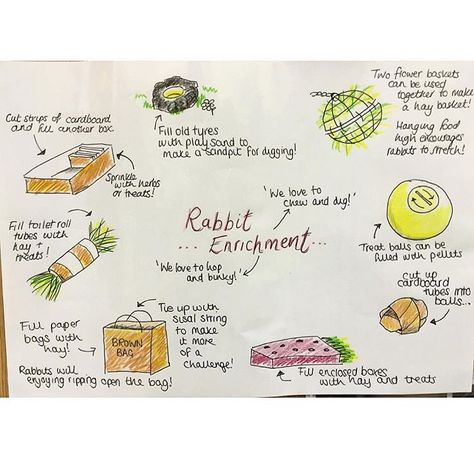 Two flower baskets
can be used
together to make
a hay basket!
Hanging food
high encourages
rabbits to stretch!
Cut strips of cardboard
and fill another box.
Sprinkle
with herbs
or treats!
Fill old tyres
with play sand to
make a sandpit for digging!
'We love to
chew and dig!'
Rabbit
... Enrichment...
'We love to hop
and binky!'
Fill toilet roll
tubes with
hay +
treats!
Treat balls can be
filled with pellets
Cut up
cardboard
tubes into
balls...
Fill paper
bags with
hay!
BROWN
BAG
Rabbits will
enjoying ripping open the bag!
Tie up with
sisal string
to make
it more
of a
challenge!
Fill enclosed boxes
with hay and treats